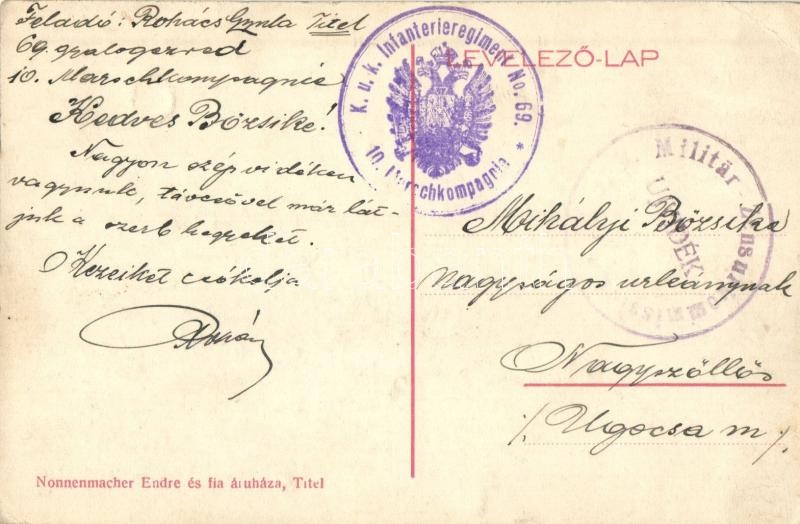 Feladó: Rohács Gyula Titel
69. gyalogezred
10. Marschkompagnie
Kedves Bözsike!
Nagyon szép vidéken
vagyunk, távcsővel már lát-
juk a szerb hegyeket.
Kezeiket csókolja
K. u. k. Infanterieregiment No. 69. *
10. Marschkompagnie
LEVELEZŐ-LAP
Militär-Zensur
Mihályi Bözsike
nagyságos urleánynak
Nagyszöllös
/. Ugocsa m /.
Nonnenmacher Endre és fia áruháza, Titel